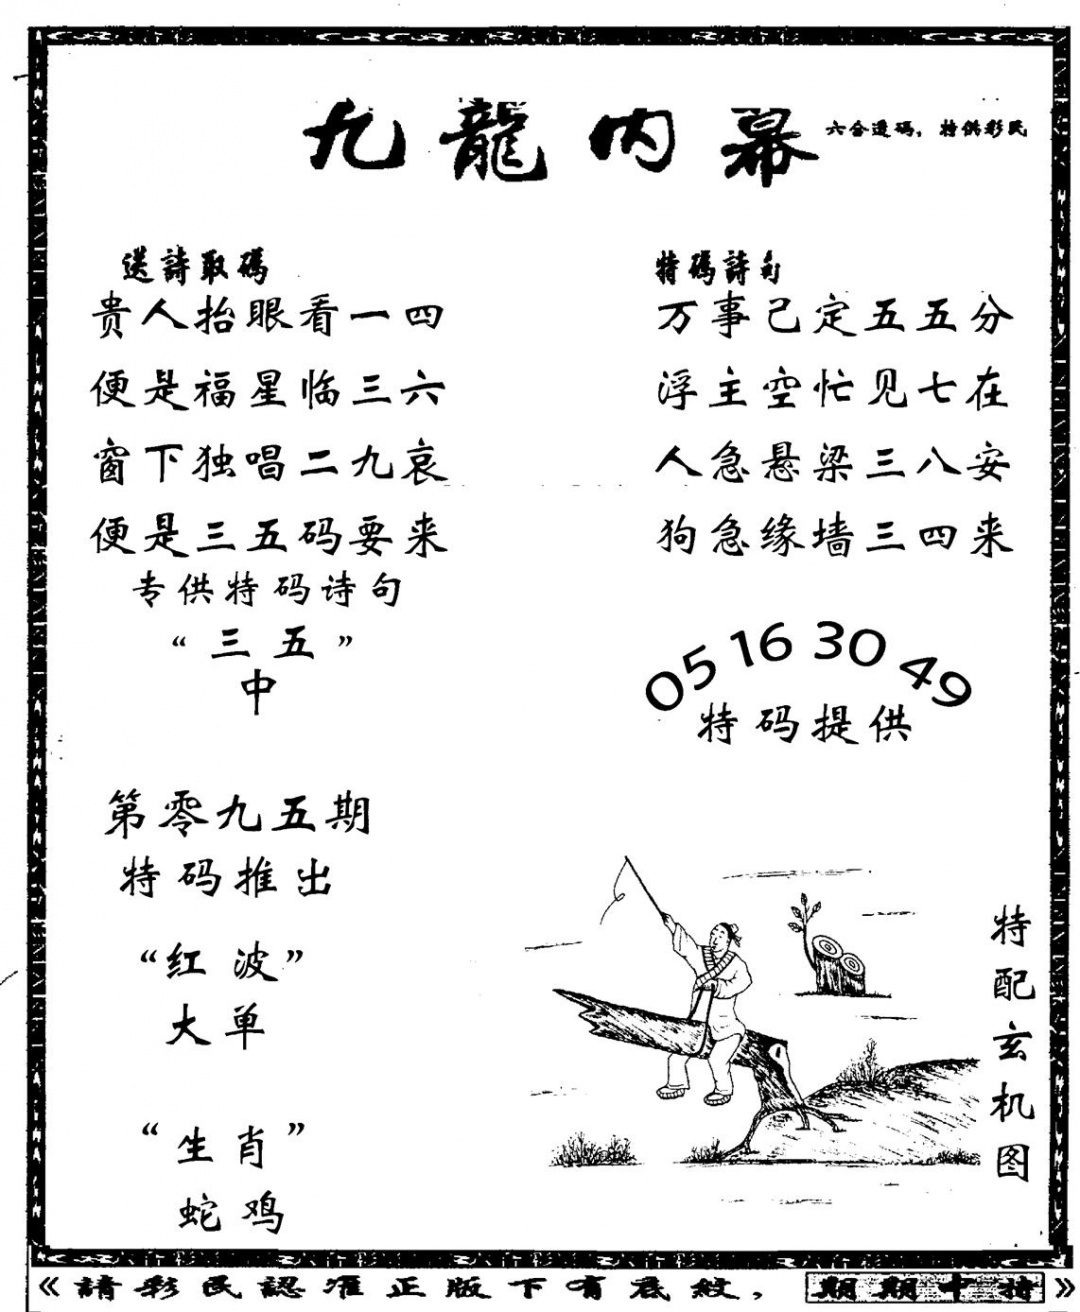 九龍内幕
六合透码，特供彩民
送詩取碼
贵人抬眼看一四
便是福星临三六
窗下独唱二九哀
便是三五码要来
专供特码诗句
“三五”
中
特碼詩句
万事己定五五分
浮主空忙见七在
人急悬梁三八安
狗急缘墙三四来
05 16 30 49
特码提供
第零九五期
特码推出
“红波”
大单
“生肖”
蛇鸡
特配玄机图
《請彩民認准正版下有底紋，期期中特》